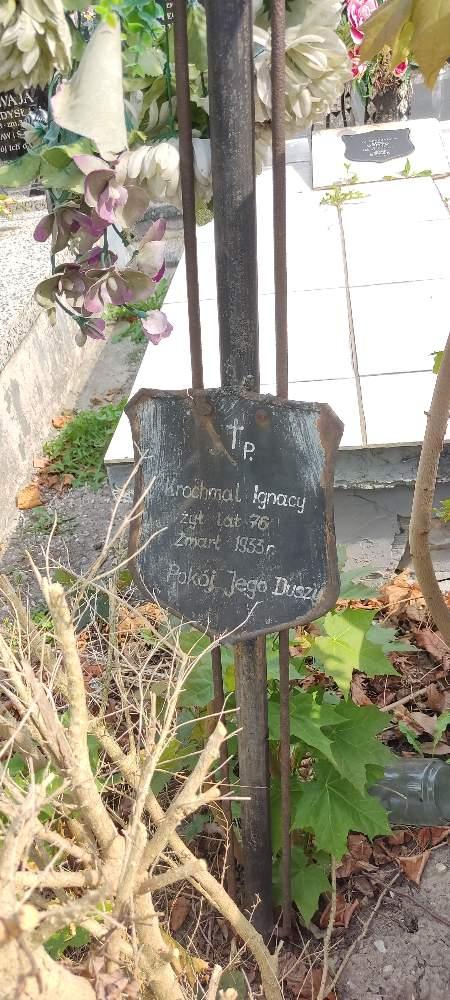 † P.
Krochmal Ignacy
żył lat 76
Zmarł 1933 r.
Pokój Jego Duszy
WAJA